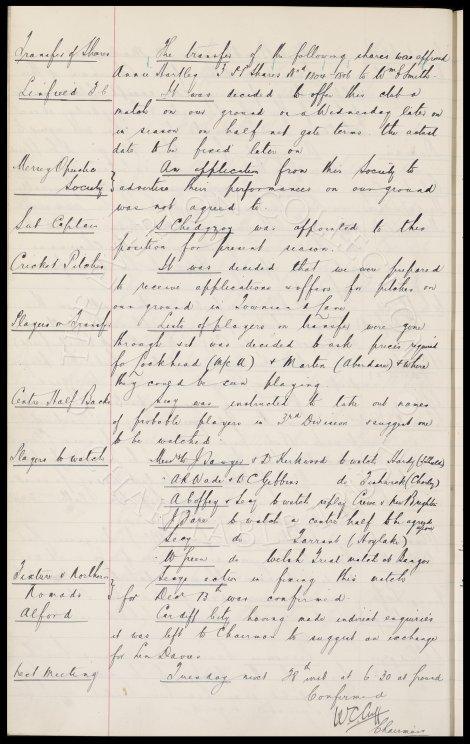 Transfer of Shares
The transfer of the following shares was approved
Annie Hartley 3 Shares to Wm Smith
Linfield F.C.
It was decided to offer this club a
match on our ground on a Wednesday later on
in season on half net gate terms. The actual
date to be fixed later on
Mersey Operatic
Society
An application from this Society to
advertise their performances on our ground
was not agreed to.
Sub Captain
S Chedgzoy was appointed to this
position for present season.
Cricket Pitches
It was decided that we were prepared
to receive applications & offers for pitches on
our ground in Townsend Lane
Players on Transfer
Lists of players on transfer were gone
through & it was decided to ask prices required
for Lockhead & Martin (Aberdare) & where
they could be seen playing.
Centre Half Backs
Secy was instructed to take out names
of probable players in 3rd Division & suggest one
to be watched
Players to watch
Messrs J Sawyer & D Kirkwood to watch Hardy
A R Wade & W C Gibbins do (Chorley)
A Coffey & Secy to watch replay Crewe v New Brighton
J Fare to watch a centre half to be agreed upon
Secy do Tarrant (Hoylake)
W Green do Welsh Trial match at Bangor
Fixture v Northern
Nomads
Secys action in fixing this match
for Dec 13th was confirmed
Alford
Cardiff City having made indirect enquiries
it was left to Chairman to suggest an exchange
for Len Davies
Next Meeting
Tuesday next 28th inst at 6.30 at ground
Confirmed
W.C. Cuff
Chairman